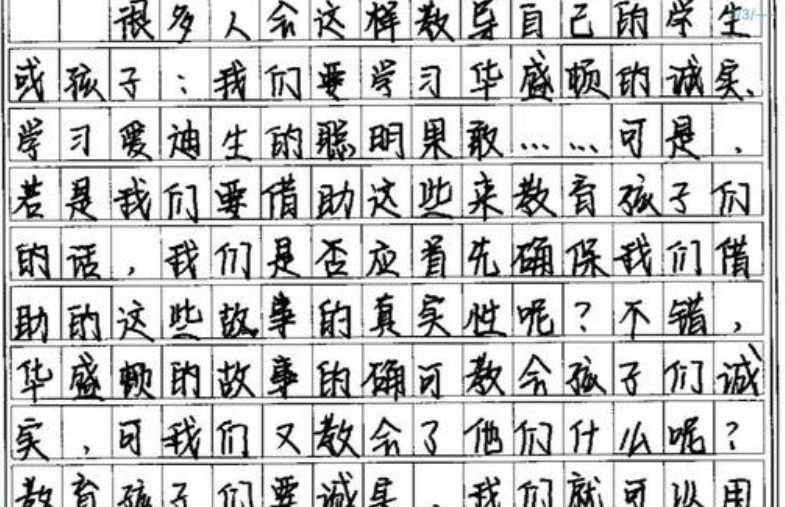 很多人会这样教导自己的学生
或孩子：我们要学习华盛顿的诚实、
学习爱迪生的聪明果敢……可是，
若是我们要借助这些来教育孩子们
的话，我们是否应首先确保我们借
助的这些故事的真实性呢？不错，
华盛顿的故事的确可教会孩子们诚
实，可我们又教会了他们什么呢？
教育孩子们要诚实，我们就可以用